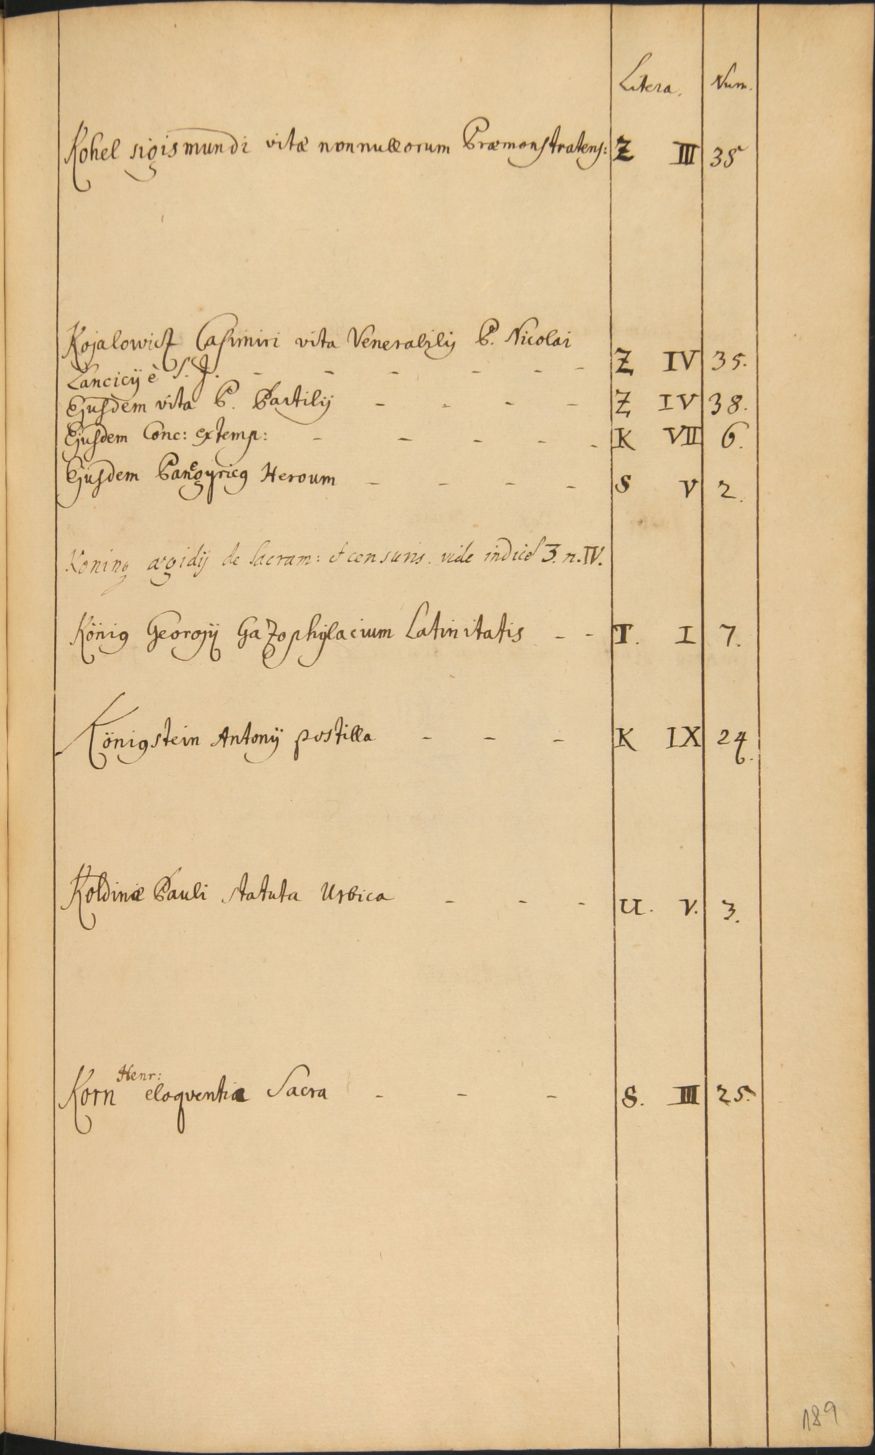 Litera. Num.
Kohel sigismundi vitæ nonnullorum Præmonstratens: Z III 35
Kojalowicz Casimiri vita Venerabilis P. Nicolai
Lancicij è S. J. - - - - - - Z IV 35.
Ejusdem vita P. Bartilij - - - - Z IV 38.
Ejusdem Conc: extemp: - - - - - K VII 6.
Ejusdem Panegyricq Heroum - - - - S V 2.
Koning ægidij de Sacram: et censuris. vide indicē 3. n. IV.
König Georgij Gazophylacium Latinitatis - - T. I 7.
Königstein Antonij postilla - - - K IX 24.
Koldinæ Pauli statuta Urbica - - - U. V. 3.
Henr:
Korn eloqventia Sacra - - - S. III 25.
189